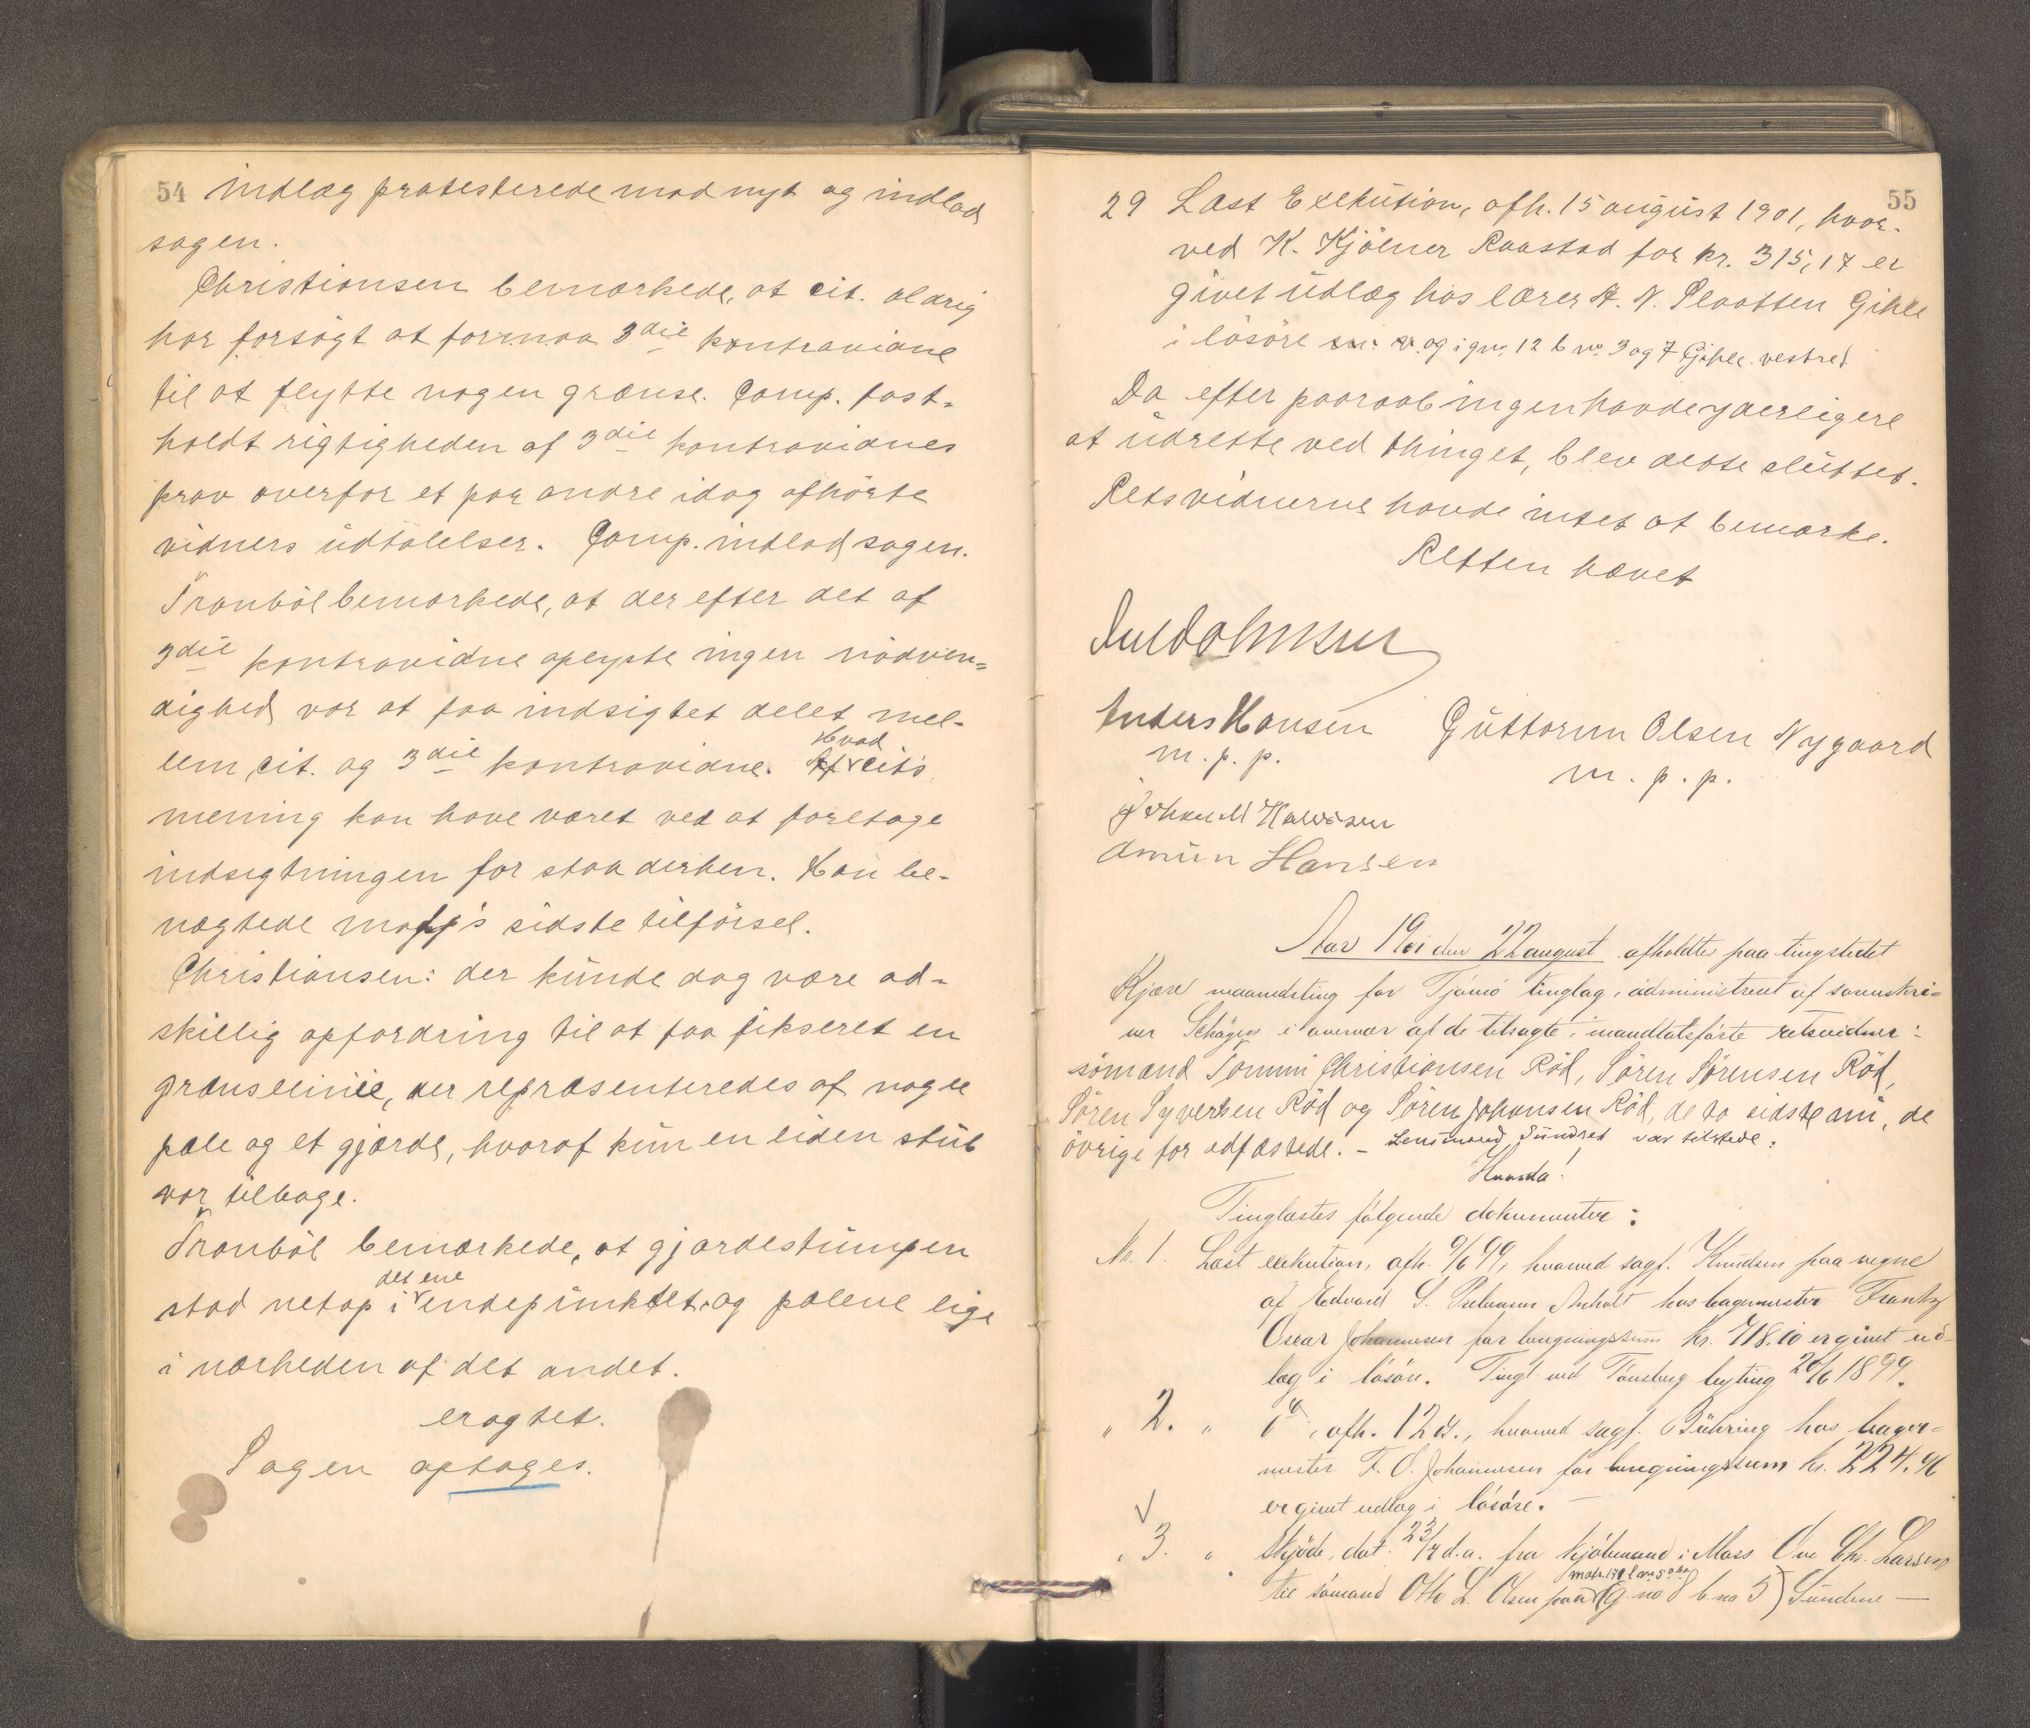 54 indlæg protesterede mod nyt og indlod
sagen.
Christiansen bemærkede, at cit. aldrig
har forsøgt at formaa 3die kontravidne
til at flytte nogen grænse. Comp. fast-
holdt rigtigheden af 3die kontravidnes
prov overfor et par andre idag afhörte
vidners udtalelser. Comp. indlod sagen.
Tranböl bemærkede, at der efter det af
3die kontravidne oplyste ingen nödven-
dighed var at faa indsigtet delet mel-
lem cit. og 3die kontravidne. Hvad cit's
mening kan have været ved at foretage
indsigtningen for staa derhen. Han be-
nægtede modp's sidste tilförsel.
Christiansen: der kunde dog være ad-
skillig opfordring til at faa fikseret en
grænselinie, der repræsenteredes af nogle
pæle og et gjærde, hvoraf kun en liden stub
var tilbage.
Tranböl bemærkede, at gjærdestumpen
stod netop i det ene endepunktet og pælene lige
i nærheden af det andet.
eragtet.
Sagen optages.
55
29 Læst Exekution, afh. 15 august 1901, hvor-
ved K. Kjölner Raastad for kr. 315,17 er
givet udlæg hos lærer A. N. Plaatten Gihle
i lösöre og i gno. 12 b no. 3 og 7 Gihle vestre.
Da efter paaraab ingen havde yderligere
at udrette ved thinget, blev dette sluttet.
Retsvidnerne havde intet at bemærke.
Retten hævet
Anders Hansen Guttorm Olsen Nygaard
m. p. p. m. p. p.
Johan M Halvorsen
Amun Hansen
Aar 1901 den 22 august afholdtes paa tingstedet
Kjære maanedsting for Tjömö tinglag, administreret af sorenskri-
ver Schöyen i overvær af de tilsagte i mandtalsførte retsvidner:
sömænd Tommi Christiansen Röd, Sören Sörensen Röd,
Sören Syvertsen Röd og Sören Johansen Röd, de to sidste nu, de
övrige før edfæstede. – Lensmand Sundset var tilstede.
Hvorda!
Tinglæstes følgende dokumenter:
N. 1. Læst exekution, afh. 9/6 99, hvorved sagf. Knudsen paa vegne
af Edvard S. Anholt hos bagermester Frantz
Oscar Johannesen for bougningssum kr. 718.10 er givet ud-
læg i løsöre. Tingl. ved Tönsberg byting 20/6 1899.
" 2. " do, afh. 12 ds., hvorved sagf. Bühring hos bager-
mester F. O. Johannesen for sum kr. 224.96
er givet udlæg i lösöre. –
✓
" 3. " Skjöde, dat. 23/7 d.a. fra kjöbmand i Moss Ove Chr. Larsen
til sömand Oth L. Olsen paa (g. no 8 b. no 5) Sundene –